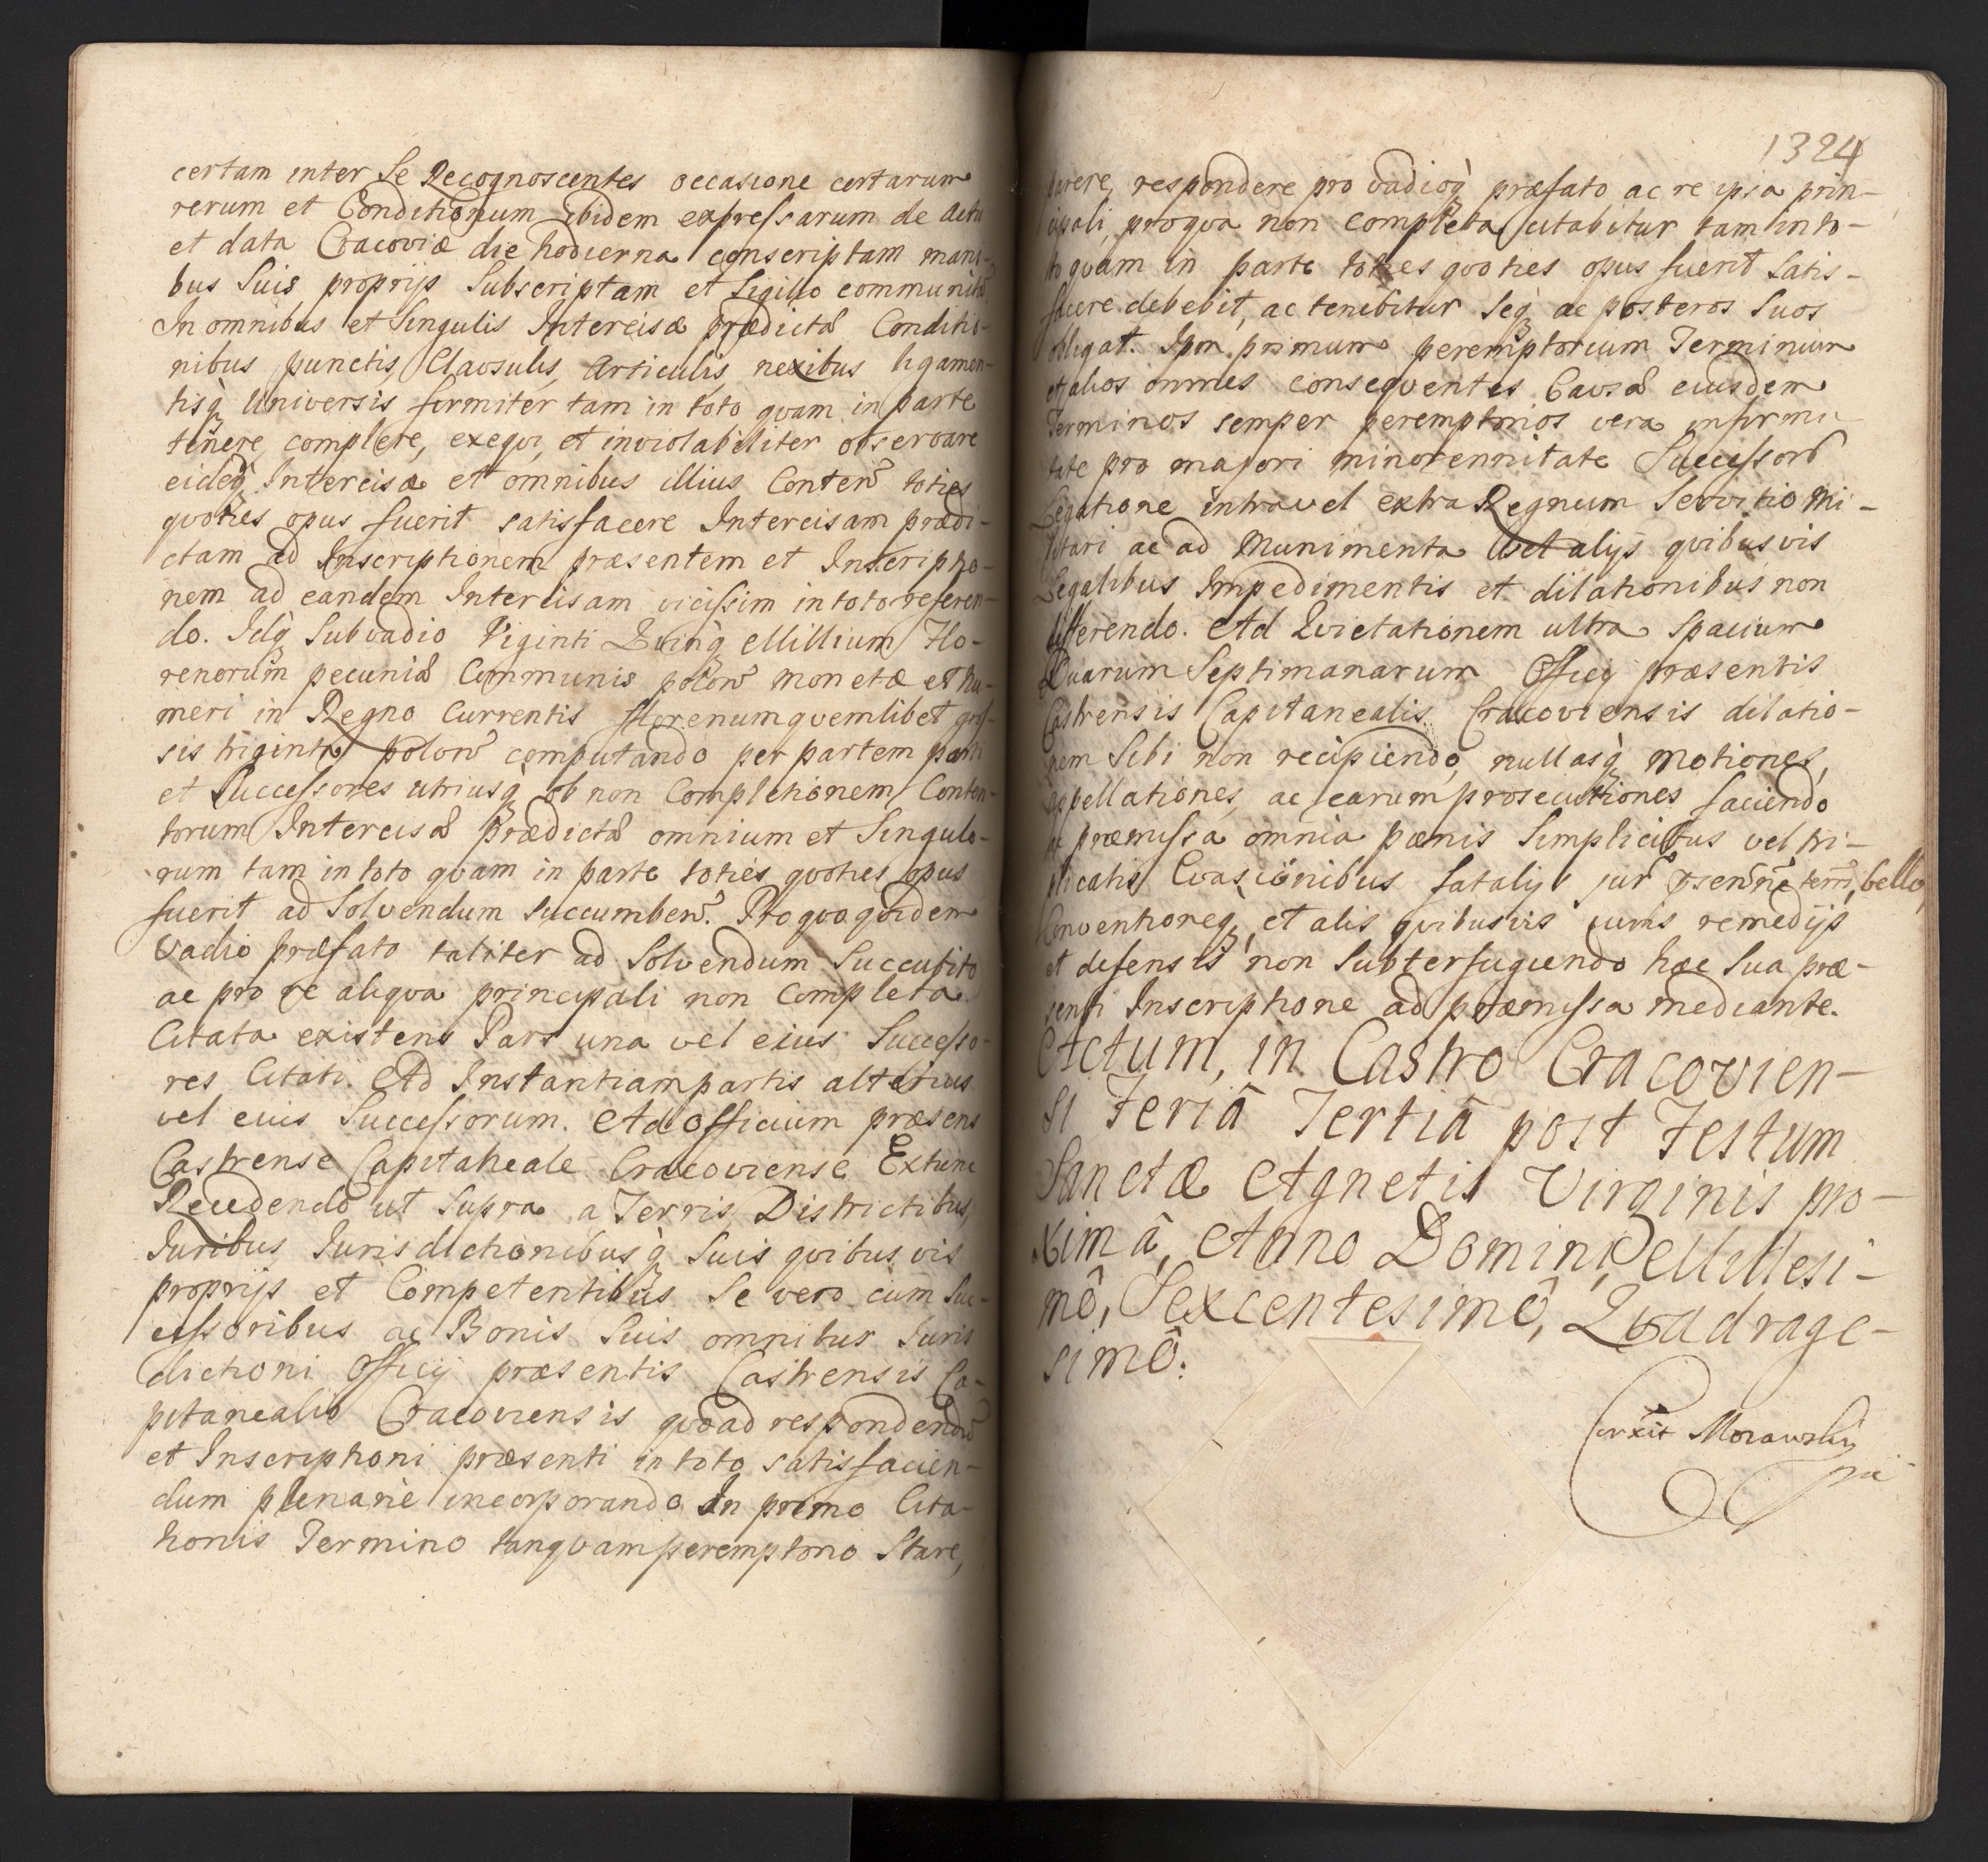 certam inter Se Recognoscentes occasione certarum
rerum et Conditionum ibidem expressarum de actu
et data Cracoviæ die hodierna conscriptam mani-
bus Suis proprijs Subscriptam et Sigillo communitã
In omnibus et Singulis Intercisæ prædictæ Conditio-
nibus punctis, Clavsulis, Articulis, nexibus ligamen-
tisq̀ Universis firmiter tam in toto qvam in parte
tenere, complere, exeqvi, et inviolabiliter observare
eideq̀ Intercisæ et omnibus illius Conten̄ toties
qvoties opus fuerit satisfacere Intercisam prædi-
ctam ad Inscriptionem præsentem et Inscriptio-
nem ad eandem Intercisam vicissim in toto referen-
do. Idq̀ Sub vadio Viginti Qvinq̀ Millium Flo-
renorum pecuniæ Communis polon̄ monetæ et nu-
meri in Regno Currentis florenum qvemlibet gros-
sis triginta polon̄ computando per partem parti
et Successores utriusq̀ ob non Completionem Conten-
torum Intercisæ prædictæ omnium et Singulo-
rum tam in toto qvam in parte toties qvoties opus
fuerit ad Solvendum succumben̄. Pro qvo qvidem
Vadio præfato taliter ad Solvendum Succubito
ac pro re aliqva principali non Completa
Citata existens Pars una vel eius Successo-
res Citati. Ad Instantiam partis alterius
vel eius Successorum. Ad Officium præsens
Castrense Capitaneale Cracoviense Extunc
Recedendo ut Supra a Terris, Districtibus,
Iuribus Iurisdictionibusq̀ Suis qvibusvis
proprijs et Competentibus Se vero cum Suc-
cessoribus ac Bonis Suis omnibus Iuris
dictioni Officij præsentis Castrensis Ca-
pitanealis Cracoviensis qvoad respondendũ
et Inscriptioni præsenti in toto satisfacien-
dum plenarie incorporando In primo Cita-
tionis Termino tanqvam peremptorio Stare,
1324
parere, respondere pro vadioq̀ præfato ac re ipsa prin-
cipali, pro qva non completa citabitur tam in to-
to qvam in parte toties qvoties opus fuerit Satis-
facere debebit, ac tenebitur Seq̀ ac posteros Suos
obligat. Ipm primum peremptorium Terminum
et alios omnes conseqventes Cavsæ eiusdem
Terminos semper peremptorios vera infirmi-
tate pro majori minorennitate Successor̄
Legatione intra vel extra Regnum Servitio Mi-
litari ac ad Munimenta vel alijs qvibusvis
Legalibus Impedimentis et dilationibus non
differendo. Ad Qvietationem ultra Spacium
Duarum Septimanarum Officij præsentis
Castrensis Capitanealis Cracoviensis dilatio-
nem Sibi non recipiendo, nullasq̀ motiones,
appellationes, ac earum prosecutiones faciendo
ac præmissa omnia pænis Simplicibus vel tri-
plicatis Evasionibus fatalijs jur̄ terr̄, bello,
Conventioneq̀, et alis qvibusvis iuris remedijs
et defensis non Subterfugiendo hac Sua præ-
senti Inscriptione ad præmissa mediante.
Actum, in Castro Cracovien-
si Feriâ Tertiâ post Festum
Sanctæ Agnetis Virginis pro-
ximâ, Anno Domini, Millesi-
mô, Sexcentesimô, Qvadrage-
simô.
Morawski